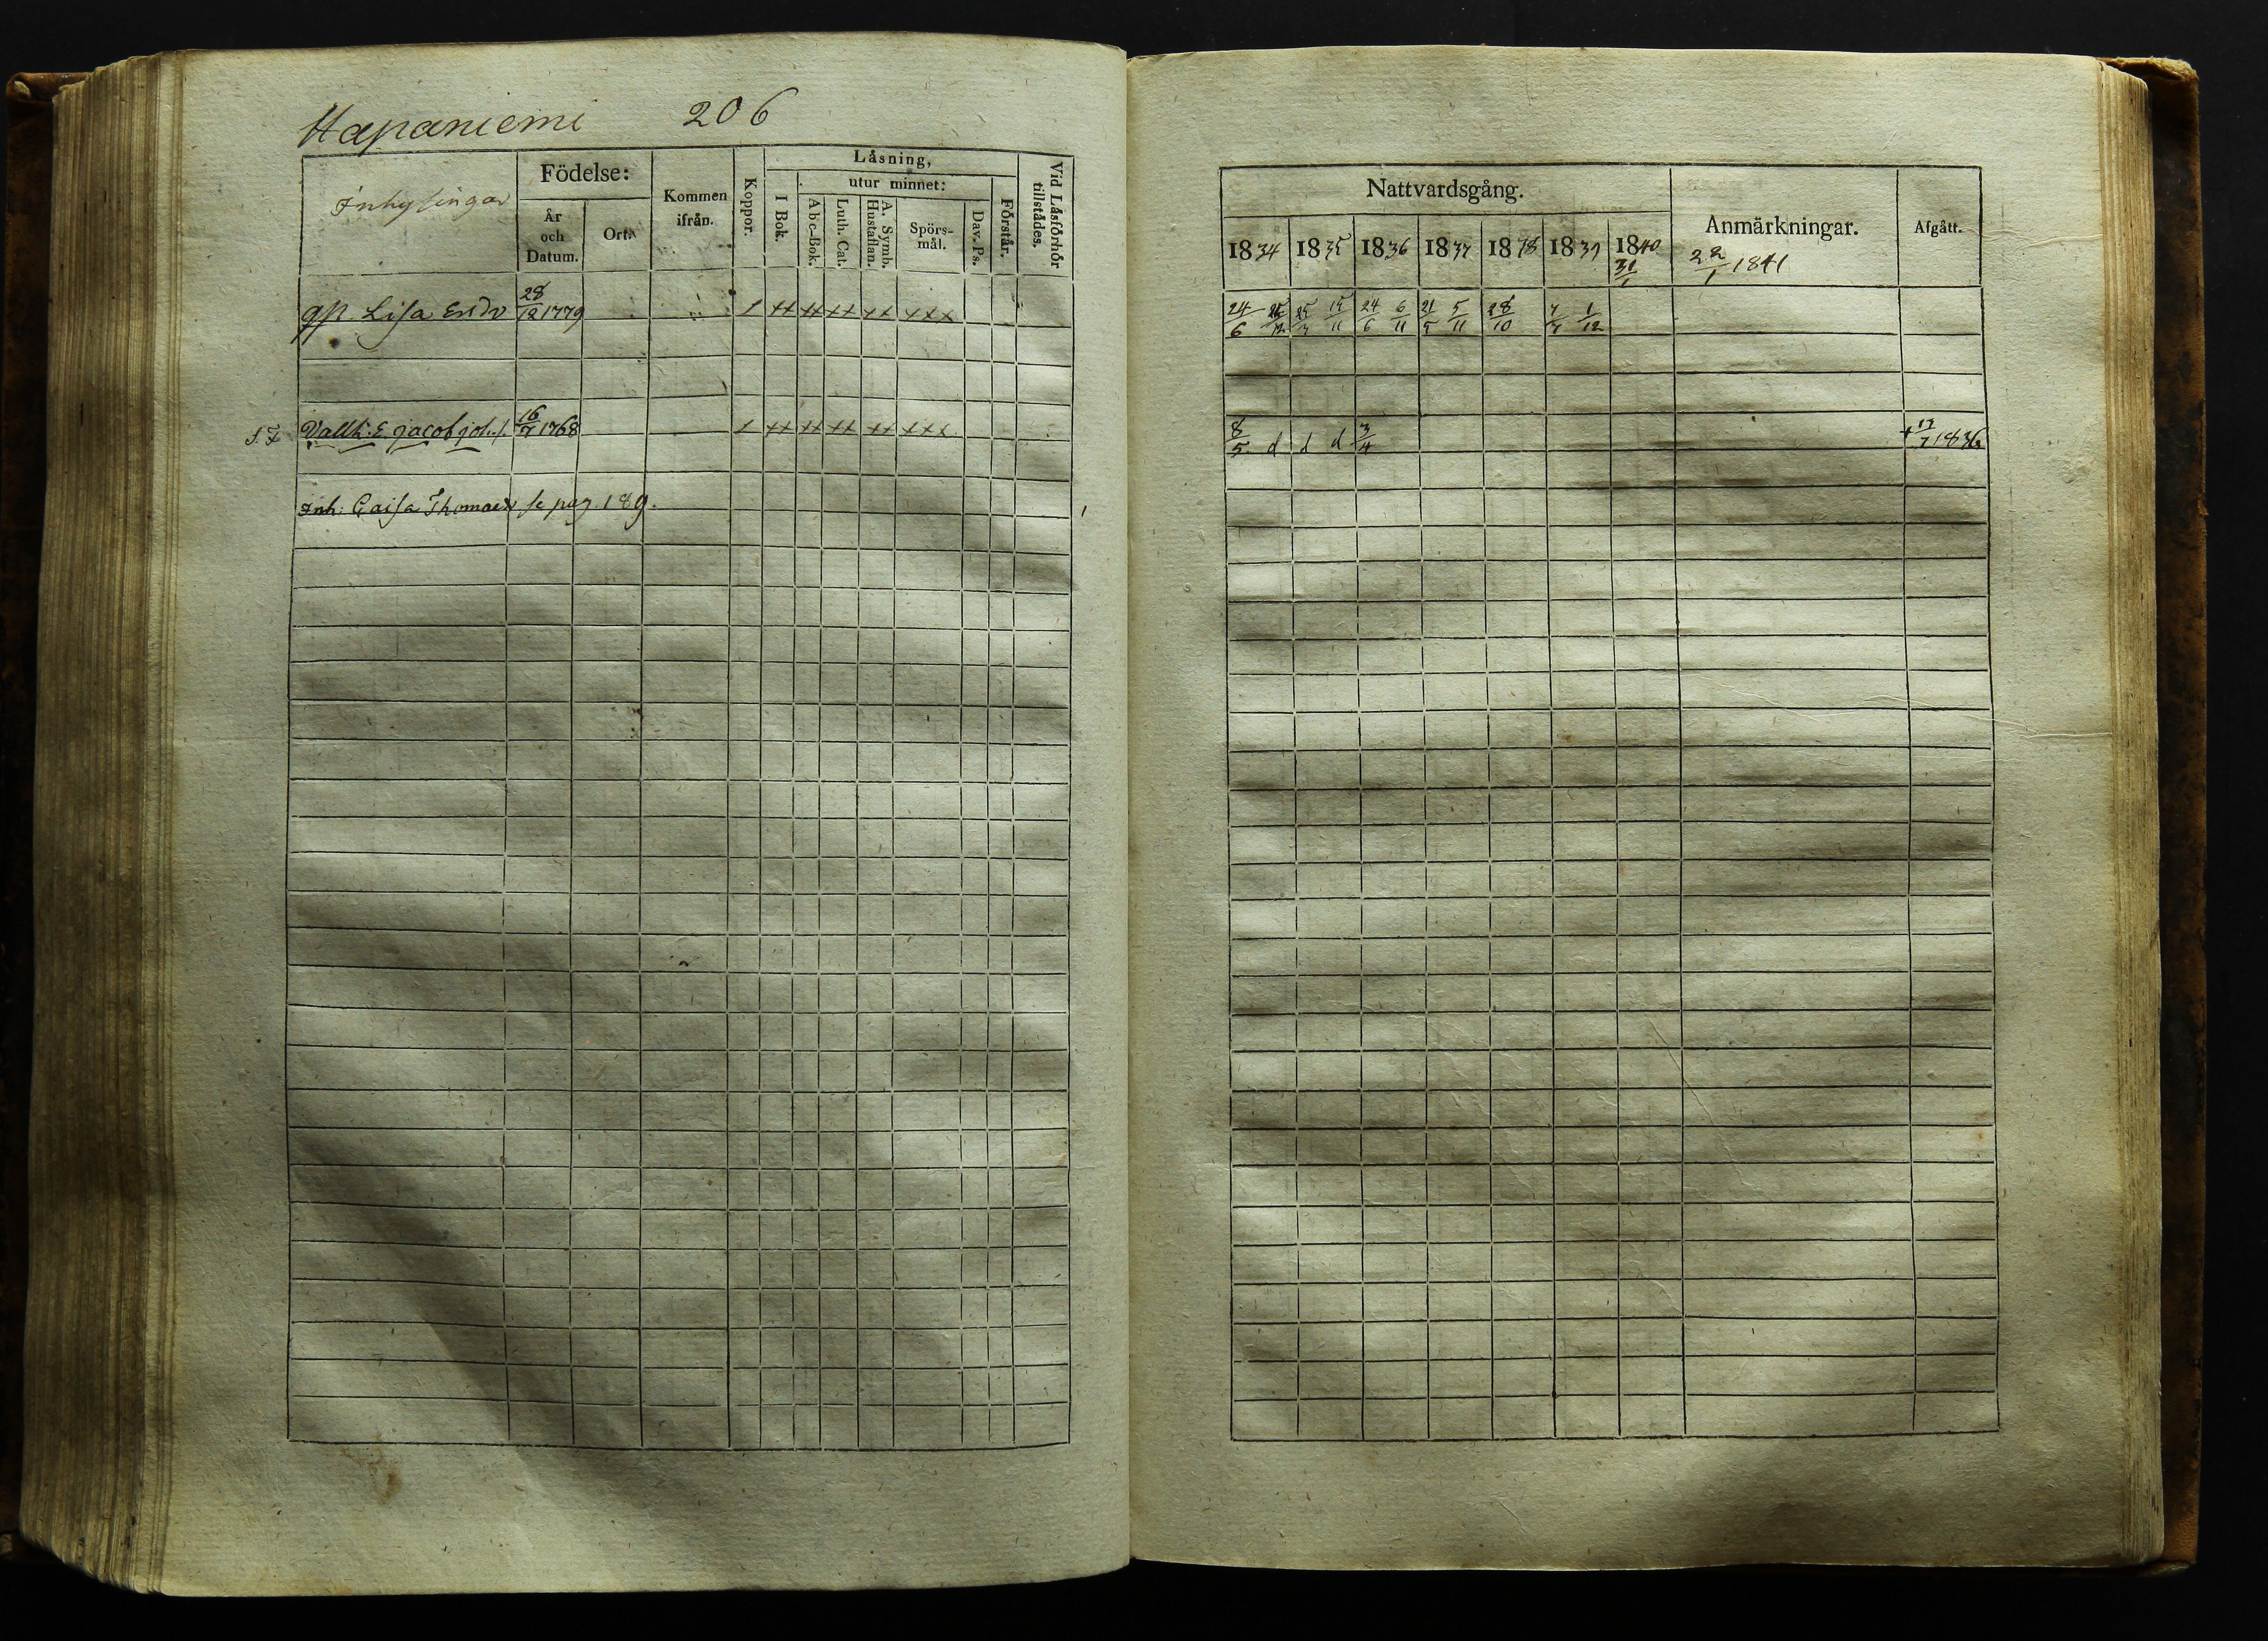 Hapaniemi 206
Inhysingar
Födelse:
År och Datum.
Ort.
Kommen ifrån.
Koppor.
Läsning,
I Bok.
utur minnet:
Abc-Bok.
Luth. Cat.
A. Symb. Hustaflan.
Spörs-mål.
Dav. Ps.
Förstår.
Vid Läsförhör tillstädes.
gp. Lisa Ersdr 28/12 1779 1 xx xx xx xx xxx
Vallk. E. Jacob Joh. 16/7 1768 1 xx xx xx xx xxx
Inh: Caisa Thomaex se pag. 189.
Nattvardsgång.
1834 1835 1836 1837 1838 1839 1840
31/1
Anmärkningar.
22/1 1841
Afgått.
24/6 24/6 6/11 21/5 5/11 28/10 1/12
8/5 d d d 3/4 + 1836